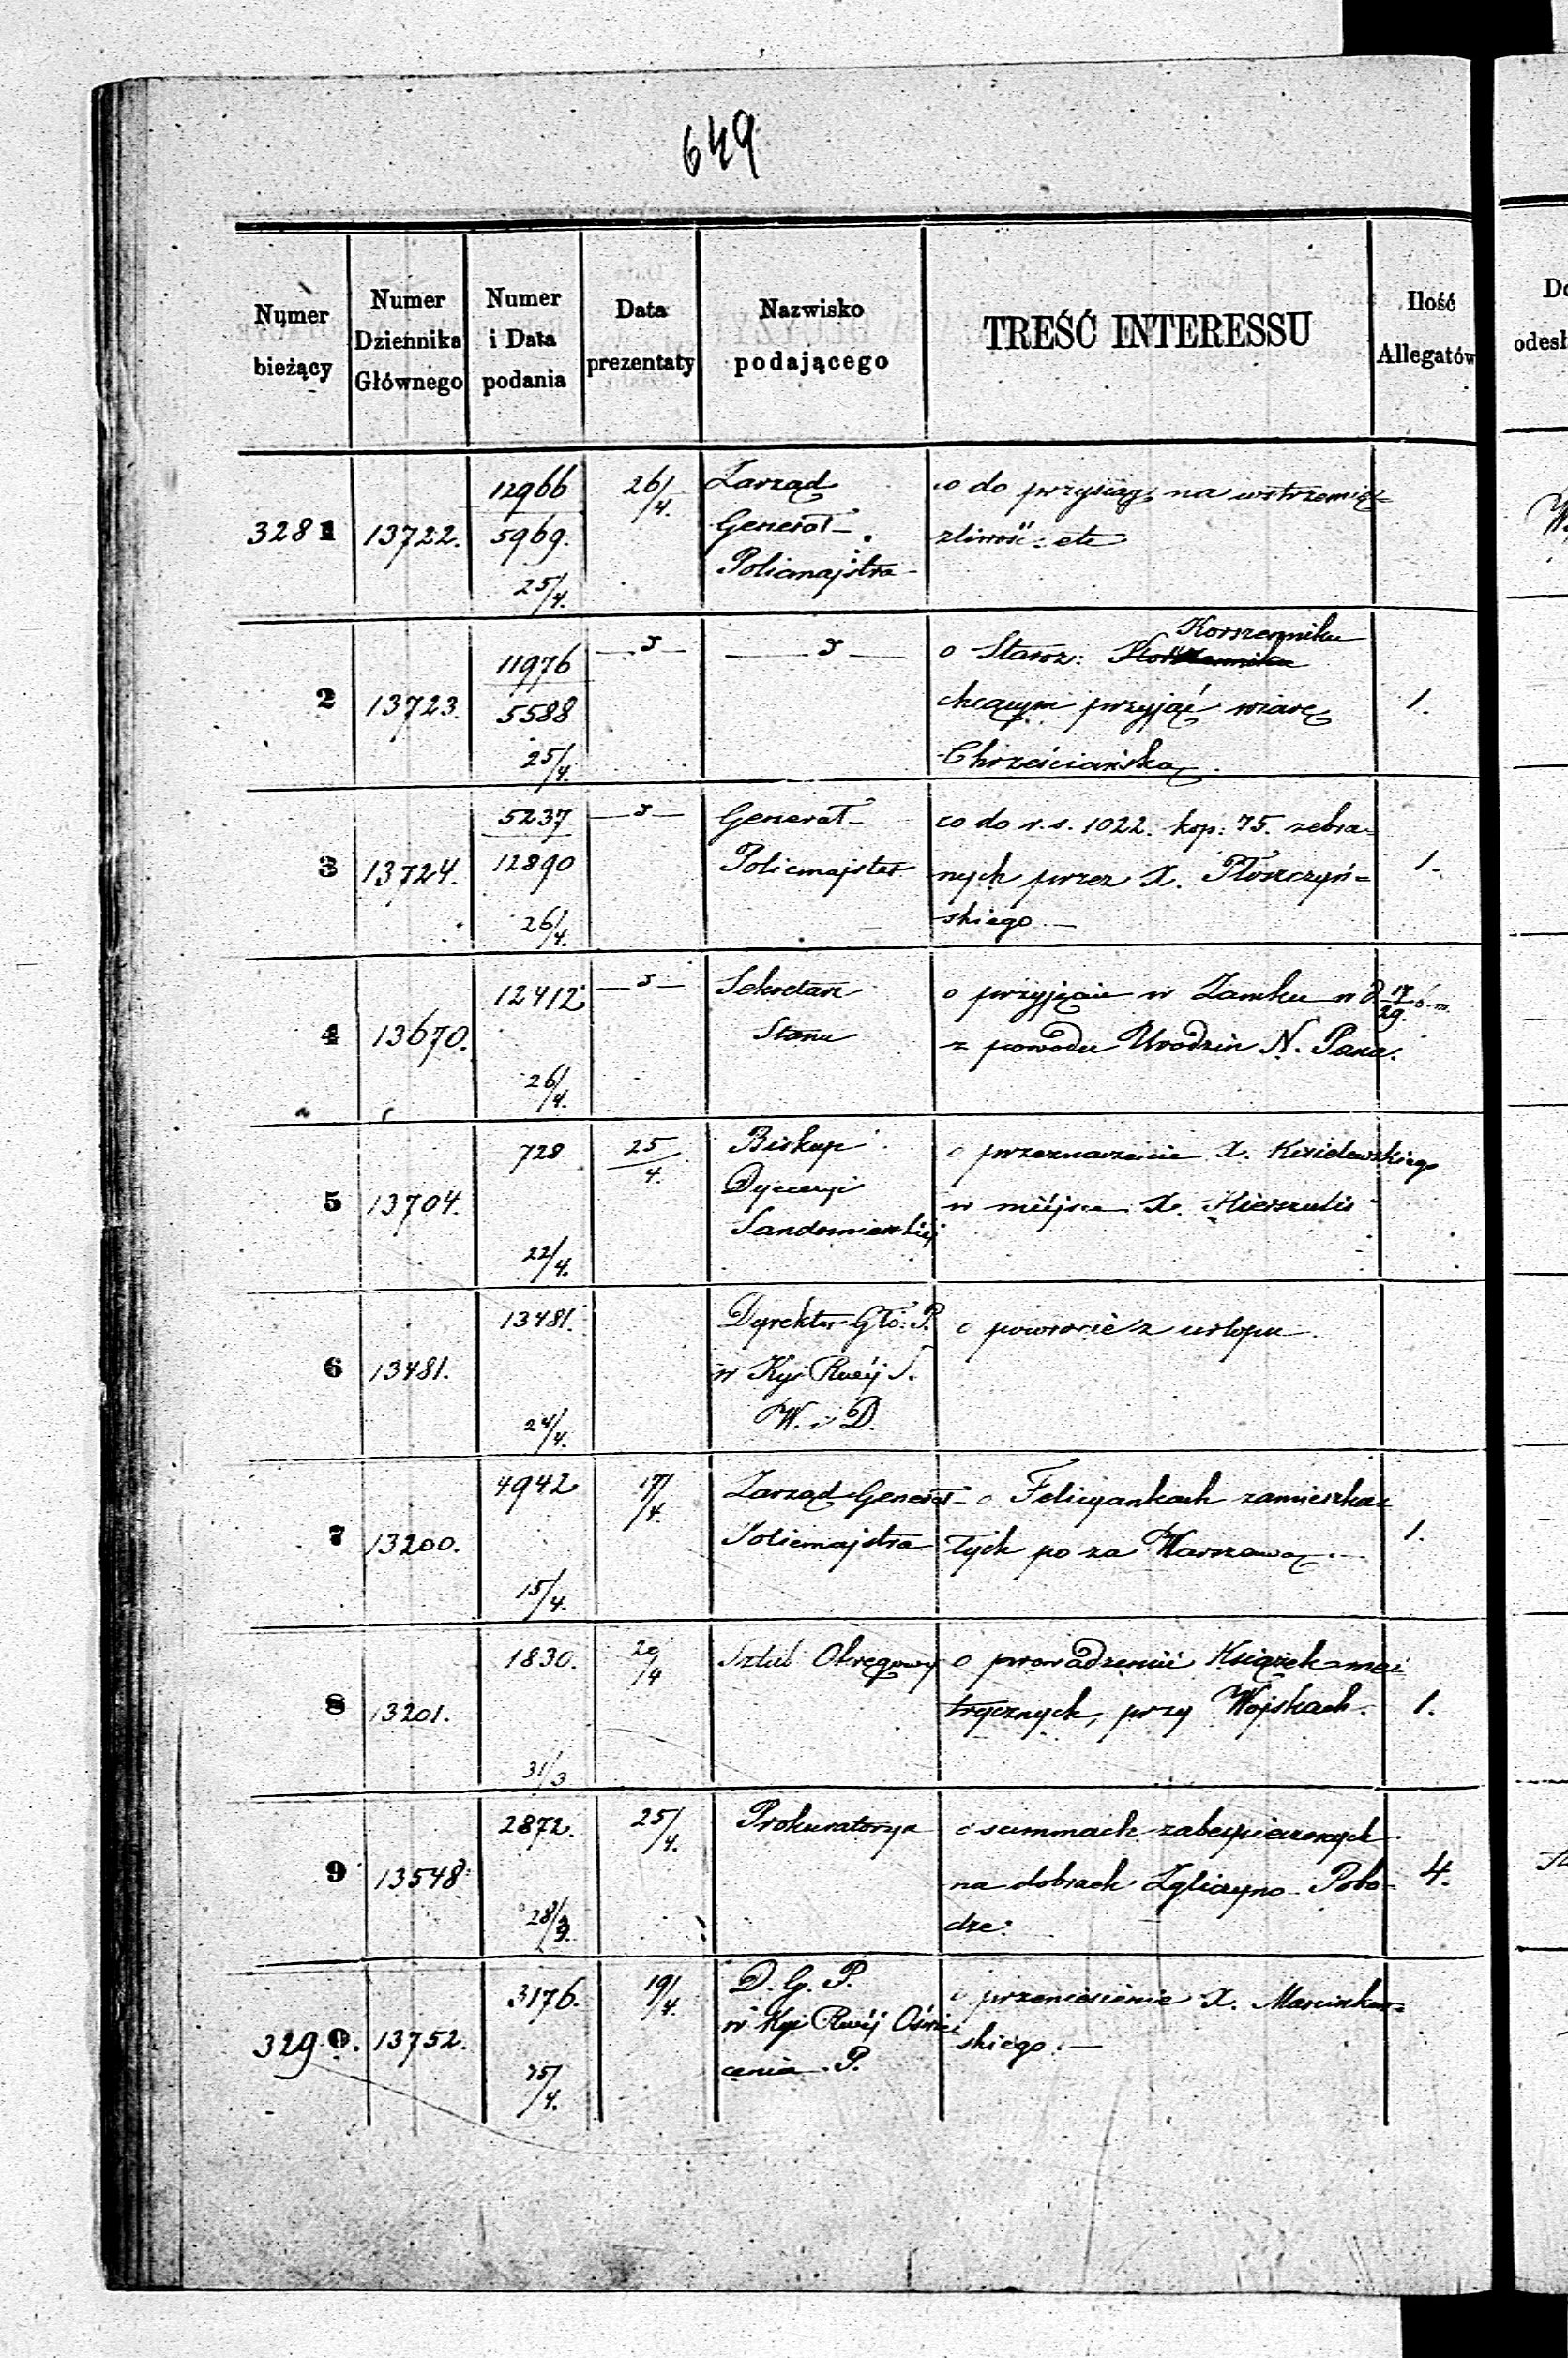 649
Numer bieżący
Numer Dziennika Głównego
Numer i Data podania
Data prezentaty
Nazwisko podającego
TREŚĆ INTERESSU
Ilość Allegatów
3281 13722. 12966 26/4. Zarząd co do przysiąg na wstrzemię-
5969. Generał- źliwość etc
25/4. Policmajstra
2 13723. 11976 Korszennika
5588 o Staroz:
25/4. chcącym przyjąć wiarę
Chrześciańską
3 13724. 5237 Generał- co do r.s. 1022. kop: 75. zebra- 1.
12890 Policmajster nych przez X. Płoszczyń=
26/4. skiego.—
4 13670. 12412 Sekretarz o przyjęciu w Zamku w d. 17/29.
26/4. Stanu z powodu Urodzin N. Pana.
5 13704. 728 25/4. Biskup o przeznaczenie X. Kisielewskiego
Dyecezyi w miejsce X.
22/4. Sandomierskiej
6 13481. 13481. Dyrektor Głó: P. o powrocie z urlopu.
w Kyi Rwéj S.
24/4. W. i D.
7 13200. 4942 17/4. Zarząd Generał- o Felicyankach zamieszka= 1.
15/4. Policmajstra łych po za Warszawą.—
8 13201. 1830. 20/4 Sztab Okręgowy o prowadzenii Książek me-
31/3 trycznych, przy Wojskach. 1.
9 13548. 2872. 25/4. Prokuratorya o summach zabezpieczonych
na dobrach Zgliczyno Pobo- 4.
dze:
3290. 13752. 3176. 19/4. D. G. P. o przeniesienie X. Marcinkow=
w Kyi Rwéj Oświe skiego.—
15/4. cenia P.